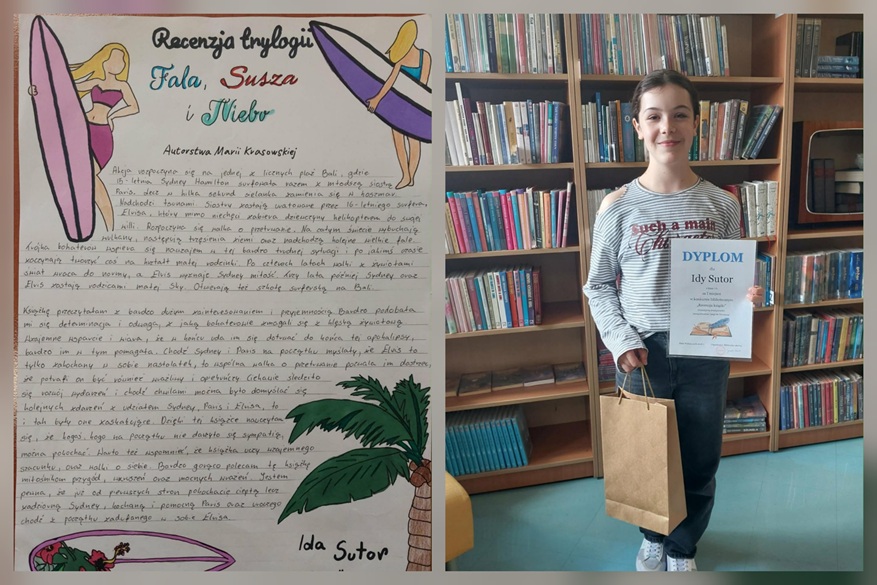 Recenzja trylogii
Fala, Susza
i Niebo
Autorstwa Marii Krasowskiej
Akcja rozpoczyna się na jednej z licznych plaż Bali, gdzie
18-letnia Sydney Hamilton surfowała razem z młodszą siostrą
Paris, lecz w kilka sekund sielanka zamienia się w koszmar.
Nadchodzi tsunami. Siostry zostają uratowane przez 16-letniego surfera,
Elvisa, który mimo niechęci zabiera dziewczyny helikopterem do swojej
willi. Rozpoczyna się walka o przetrwanie. Na całym świecie wybuchają
wulkany, następują trzęsienia ziemi oraz nadchodzą kolejne wielkie fale.
Trójka bohaterów wspiera się nawzajem w tej bardzo trudnej sytuacji i po jakimś czasie
zaczynają tworzyć coś na kształt małej rodzinki. Po czterech latach walki z żywiołami
świat wraca do normy, a Elvis wyznaje Sydney miłość. Trzy lata później Sydney oraz
Elvis zostają rodzicami małej Sky. Otwierają też szkołę surferską na Bali.
Książkę przeczytałam z bardzo dużym zainteresowaniem i przyjemnością. Bardzo podobała
mi się determinacja i odwaga, z jaką bohaterowie zmagali się z klęską żywiołową.
Wzajemne wsparcie i wiara, że w końcu uda im się dotrwać do końca tej apokalipsy,
bardzo im w tym pomagała. Choć Sydney i Paris na początku myślały, że Elvis to
tylko zakochany w sobie nastolatek, to wspólna walka o przetrwanie pozwala im dostrzec,
że potrafi on być również wrażliwy i opiekuńczy. Ciekawie śledziło
się rozwój wydarzeń i choć chwilami można było domyślać się
kolejnych zdarzeń z udziałem Sydney, Paris i Elvisa, to
i tak były one zaskakujące. Dzięki tej książce nauczyłam
się, że kogoś, kogo na początku nie darzyło się sympatią,
można pokochać. Warto też wspomnieć, że książka uczy wzajemnego
szacunku, oraz walki o siebie. Bardzo gorąco polecam tę książkę
miłośnikom przygód, wzruszeń oraz mocnych wrażeń. Jestem
pewna, że już od pierwszych stron pokochacie ciepłą lecz
Sydney, kochaną i pomocną Paris oraz
choć z początku zadufanego w sobie Elvisa.
Ida Sutor
such a main
DYPLOM
dla
Idy Sutor